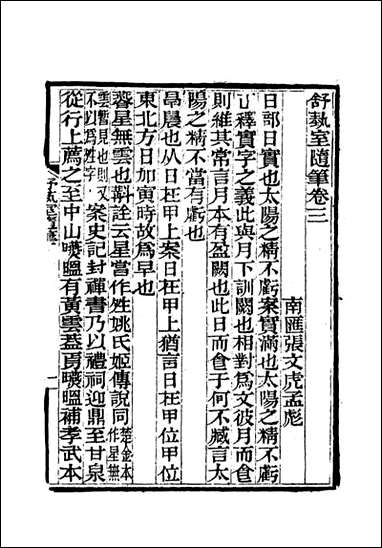 舒藝室隨筆卷三
南匯張文虎孟彪
日部日實也太陽之精不虧案實滿也太陽之精不虧
釋實字之義此與月下訓闕也相對爲文彼月而食
則維其常言月本有盈闕也此日而食于何不臧言太
陽之精不當有虧也
㫜晨也从日在甲上案日在甲上猶言日在甲位甲位
東北方日加寅時故爲早也
㬫星無雲也斠詮云星當作姓姚氏姬傳說同楚金本作星無
雲暫見也則又不以爲姓字案史記封禪書乃以禮祠迎鼎至甘泉
從行上薦之至中山曣㬈有黃雲蓋焉曣㬈補孝武本
舒藝室隨筆
一